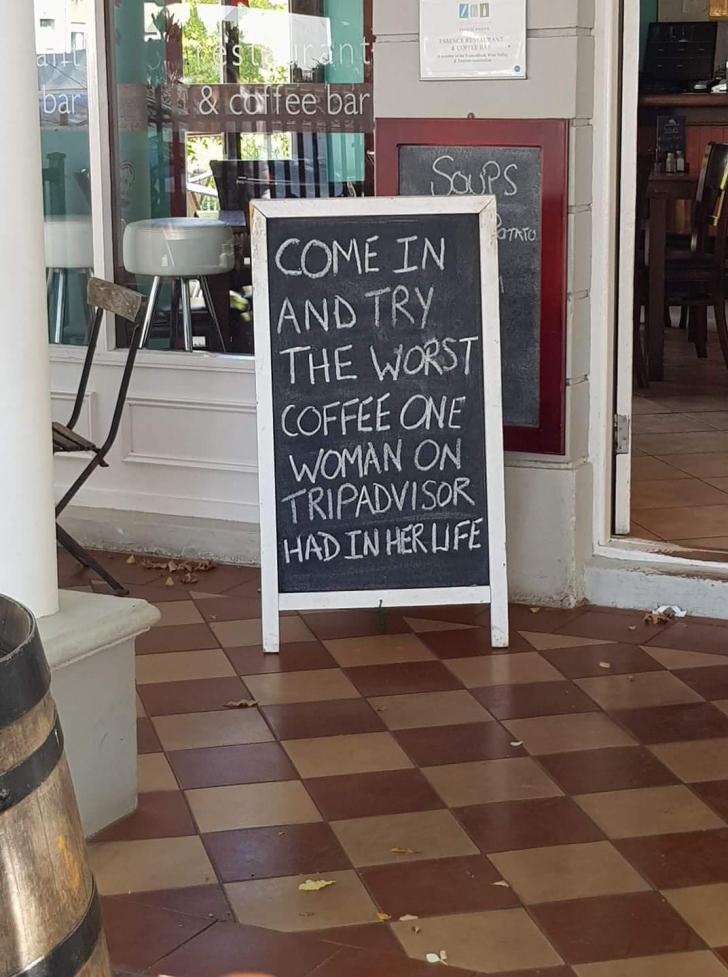 restaurant
bar
& coffee bar
ESSENCE RESTAURANT
& COFFEE BAR
SOUPS
POTATO
COME IN
AND TRY
THE WORST
COFFEE ONE
WOMAN ON
TRIPADVISOR
HAD IN HER LIFE